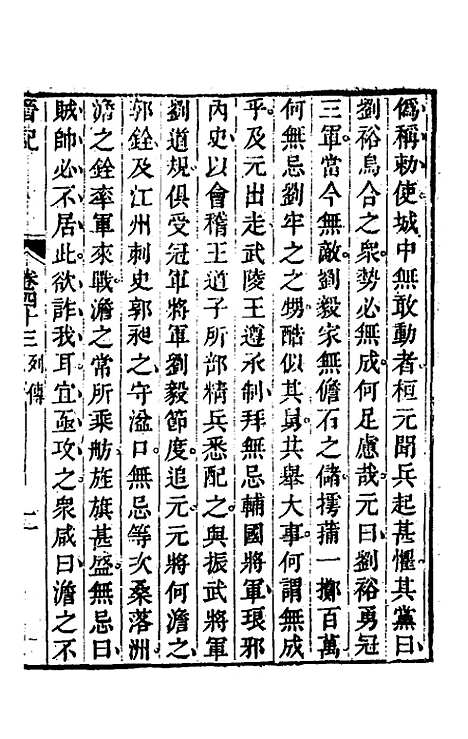 僞稱勅使城中無敢動者桓元聞兵起甚懼其黨曰
劉裕烏合之衆勢必無成何足慮哉元曰劉裕勇冠
三軍當今無敵劉毅家無儋石之儲摴蒲一擲百萬
何無忌劉牢之之甥酷似其舅其舉大事何謂無成
乎及元出走武陵王遵承制拜無忌輔國將軍琅邪
內史以會稽王道子所部精兵悉配之與振武將軍
劉道規俱受冠軍將軍劉毅節度追元元將何澹之
郭銓及江州刺史郭昶之守湓口無忌等次桑落洲
澹之銓率軍來戰澹之常所乘舫旌旗甚盛無忌曰
賊帥必不居此欲詐我耳宜亟攻之衆咸曰澹之不
晉記
卷四十三
列傳